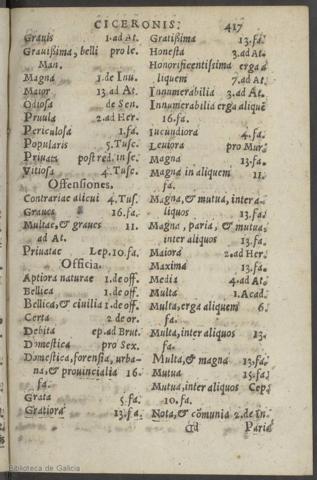 CICERONIS.
417
Grauis 1. ad At.
Grauißima, belli pro le.
Man.
Magna 1. de Inu.
Maior 13. ad At.
Odiosa de Sen.
Pruula 2. ad Her.
Periculosa 1. fa.
Popularis 5. Tusc.
Priuata post red. in se.
Vitiosa 4. Tusc.
Offensiones.
Contrariae alicui 4. Tus.
Graues 16. fa.
Multae, & graues 11.
ad At.
Priuatae Lep. 10. fa.
Officia.
Aptiora naturae 1. de off.
Bellica 1. de off.
Bellica, & ciuilia 1. de off.
Certa 2. de or.
Debita ep. ad Brut.
Domestica pro Sex.
Domestica, forensia, urba-
na, & prouincialia 16.
fa.
Grata 5. fa.
Gratiora 13. fa.
Gratißima 13. fa.
Honesta 3. ad At.
Honorificentißima erga a
liquem 7. ad At.
Innumerabilia 3. ad At.
Innumerabilia erga aliquē
16. fa.
Iucundiora 4. fa.
Leuiora pro Mur.
Magna 13. fa.
Magna in aliquem 11.
fa.
Magna, & mutua, inter a-
liquos 13. fa.
Magna, paria, & mutua,
inter aliquos 13. fa.
Maiora 2. ad Her.
Maxima 13. fa.
Media 4. ad At.
Multa 1. Acad.
Multa, erga aliquem 6.
fa.
Multa, inter aliquos 13.
fa.
Multa, & magna 13. fa.
Mutua 15. fa.
Mutua, inter aliquos Cep.
10. fa.
Nota, & cōmunia 2. de In.
Dd Paria
Biblioteca de Galicia